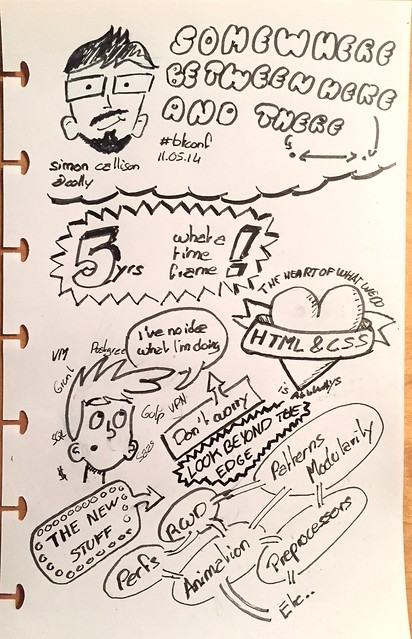 SOMEWHERE
BETWEEN HERE
AND THERE
#btconf
11.05.14
simon collison
@colly
5 yrs
what a
time
frame
!
THE HEART OF WHAT WE DO
HTML & CSS
is Always
I've no idea
what I'm doing
VM
Postgres
Grunt
Gulp
VPN
SQL
SaSS
$
Don't worry
LOOK BEYOND THE
EDGE
THE NEW
STUFF
Patterns
Modularity
RWD
Perfs
Animation
Preprocessors
Etc..